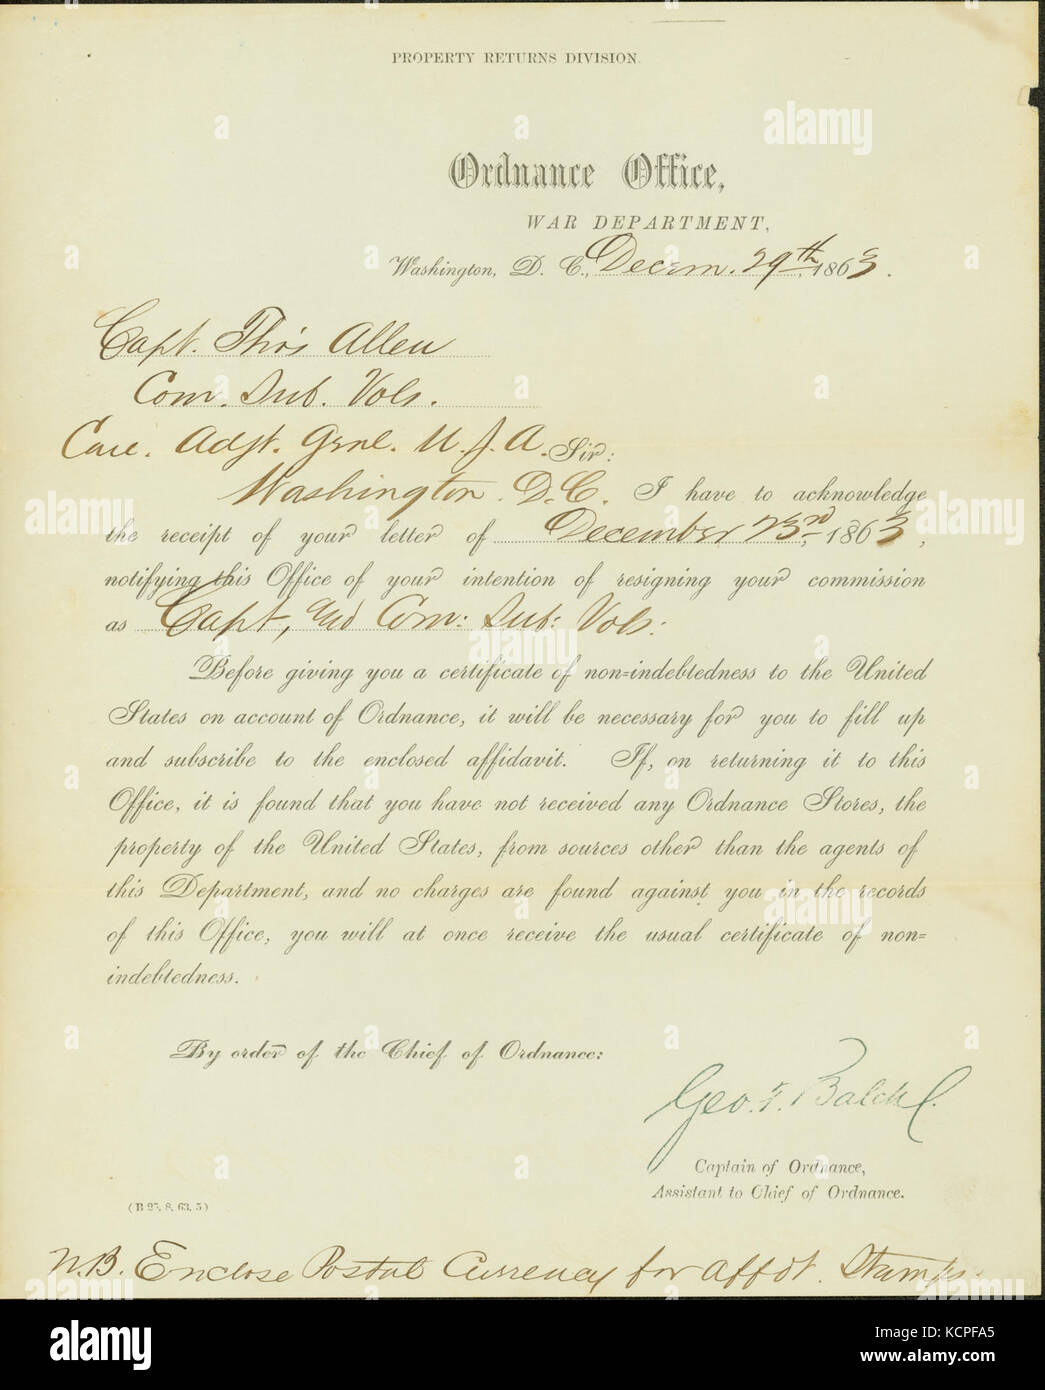 PROPERTY RETURNS DIVISION.
Ordnance Office,
WAR DEPARTMENT,
Washington, D. C., Decem. 29th, 1863.
Capt. Tho's Allen
Com. Sub. Vols.
Care. Adjt. Grnl. U.S.A. Sir:
Washington. D.C. I have to acknowledge
the receipt of your letter of December 23rd, 1863,
notifying this Office of your intention of resigning your commission
as Capt, and Com: Sub: Vols:
Before giving you a certificate of non-indebtedness to the United
States on account of Ordnance, it will be necessary for you to fill up
and subscribe to the enclosed affidavit. If, on returning it to this
Office, it is found that you have not received any Ordnance Stores, the
property of the United States, from sources other than the agents of
this Department, and no charges are found against you in the records
of this Office, you will at once receive the usual certificate of non-
indebtedness.
By order of the Chief of Ordnance:
Geo. T. Balch
Captain of Ordnance,
Assistant to Chief of Ordnance.
(B 25, 8, 63, 5)
N.B. Enclose Postal Currency for affdt. Stamps.
alamy
Image ID: KCPFA5
www.alamy.com